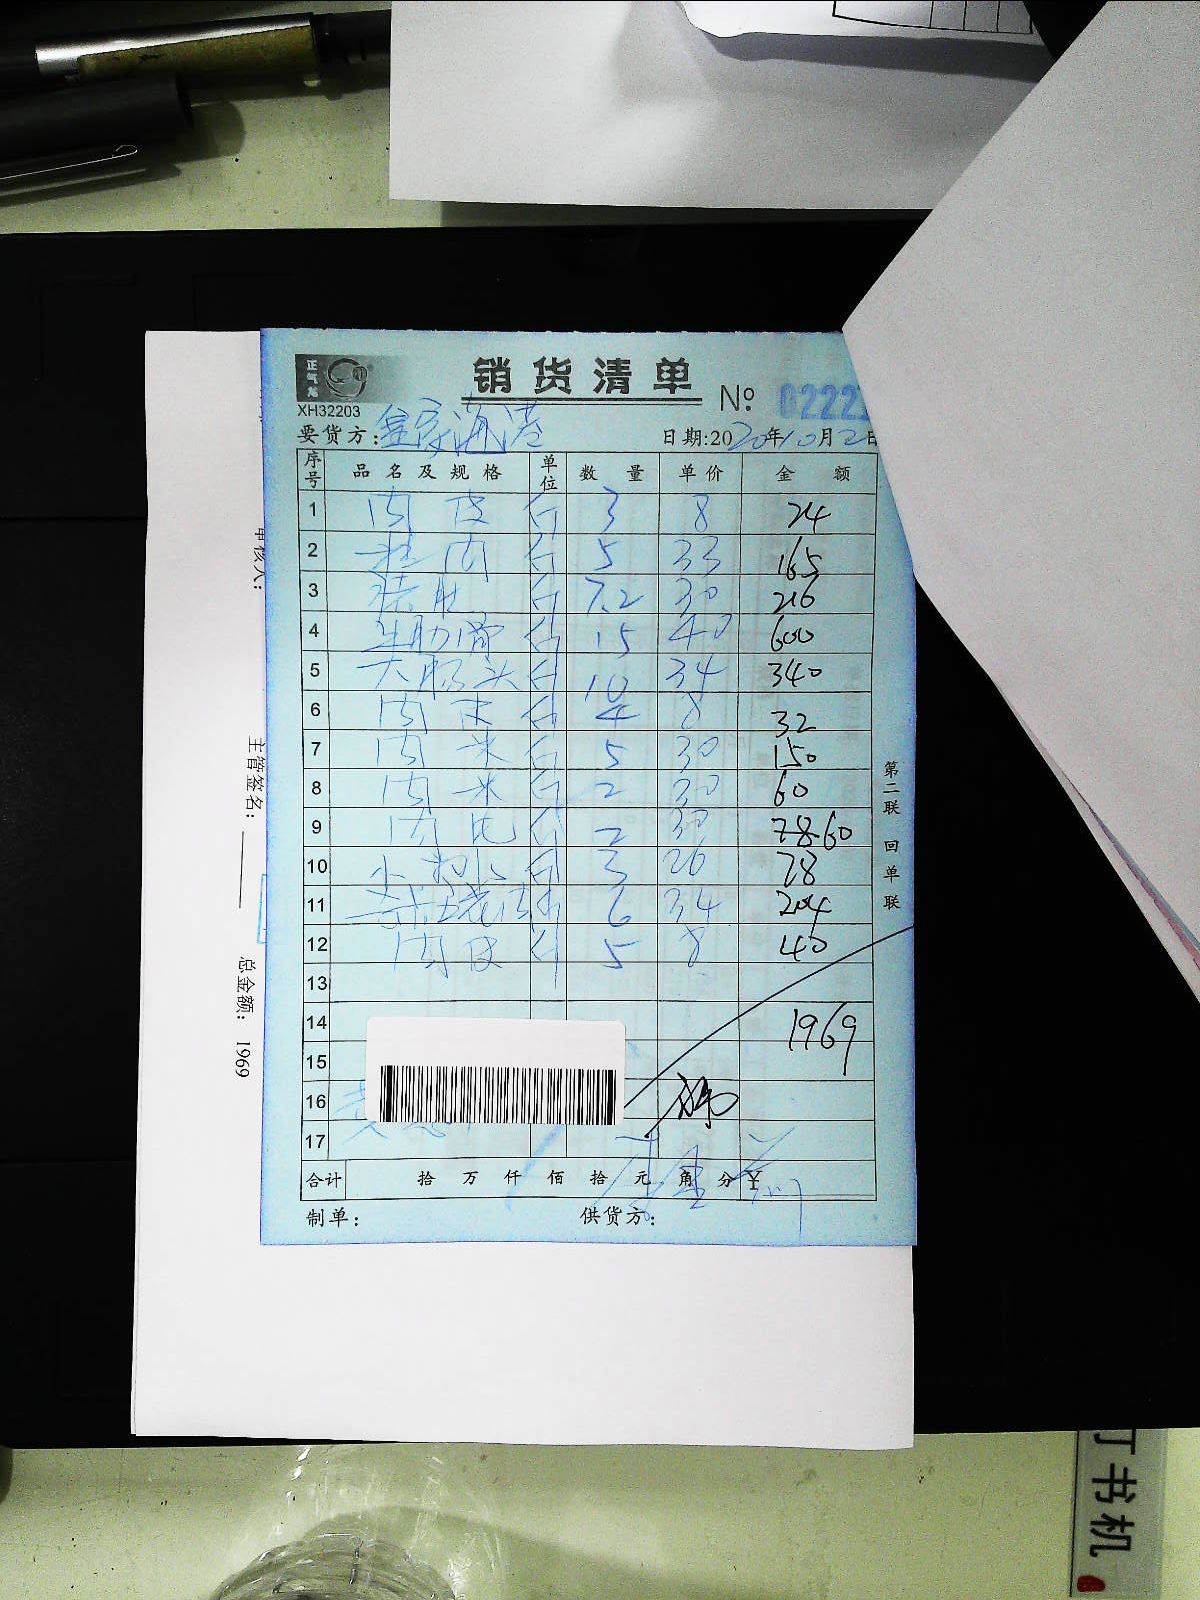 正气龙
销货清单
XH32203
№ 0222
要货方：金家渔港
日期:2020年10月2日
序号 品名及规格 单位 数量 单价 金额
1 肉皮 斤 3 8 24
2 肉 斤 5 33 165
3 猪肚 斤 7.2 30 216
4 牛肋骨 斤 15 40 600
5 大肠头 斤 10 34 340
6 肉皮 斤 4 8 32
7 肉米 斤 5 30 150
8 肉米 斤 2 30 60
9 肉 斤 2 30 78 60
10 小 斤 3 26 78
11 6 34 204
12 肉皮 斤 5 8 40
13
14 1969
15
16
17
合计 拾万仟佰拾元角分 ¥
制单： 供货方：
第二联 回单联
审核人：
主管签名：
总金额： 1969
订书机